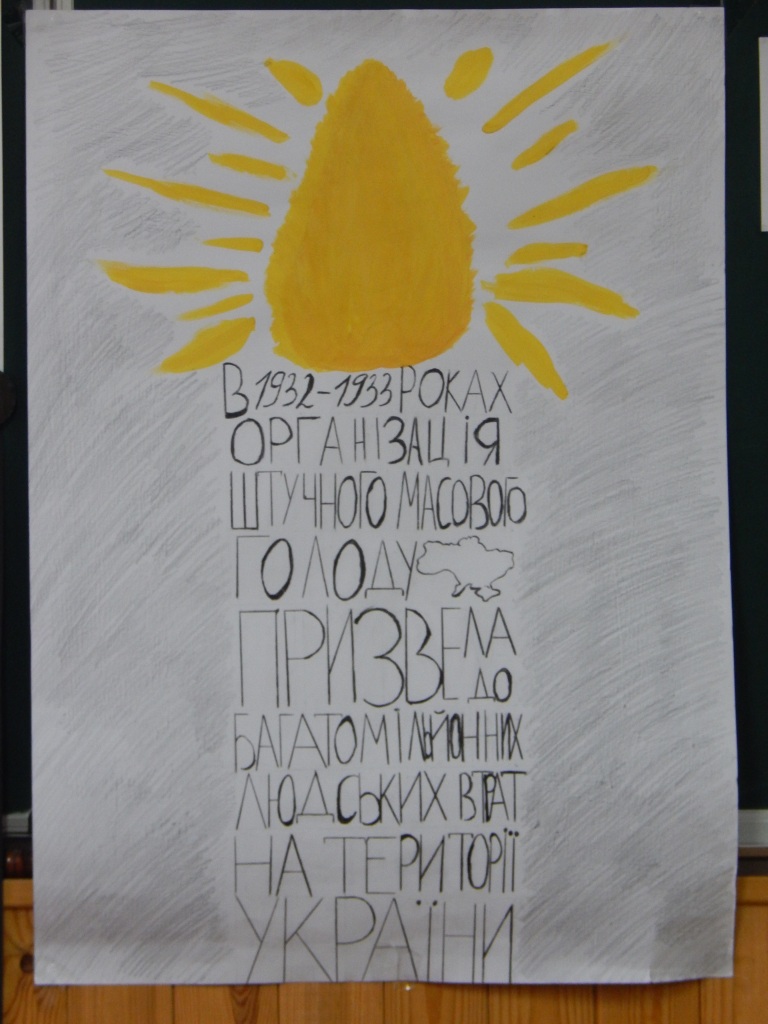 В 1932-1933 РОКАХ
ОРГАНІЗАЦІЯ
ШТУЧНОГО МАСОВОГО
ГОЛОДУ
ПРИЗВЕЛА
ДО
БАГАТОМІЛЬЙОННИХ
ЛЮДСЬКИХ ВТРАТ
НА ТЕРИТОРІЇ
УКРАЇНИ